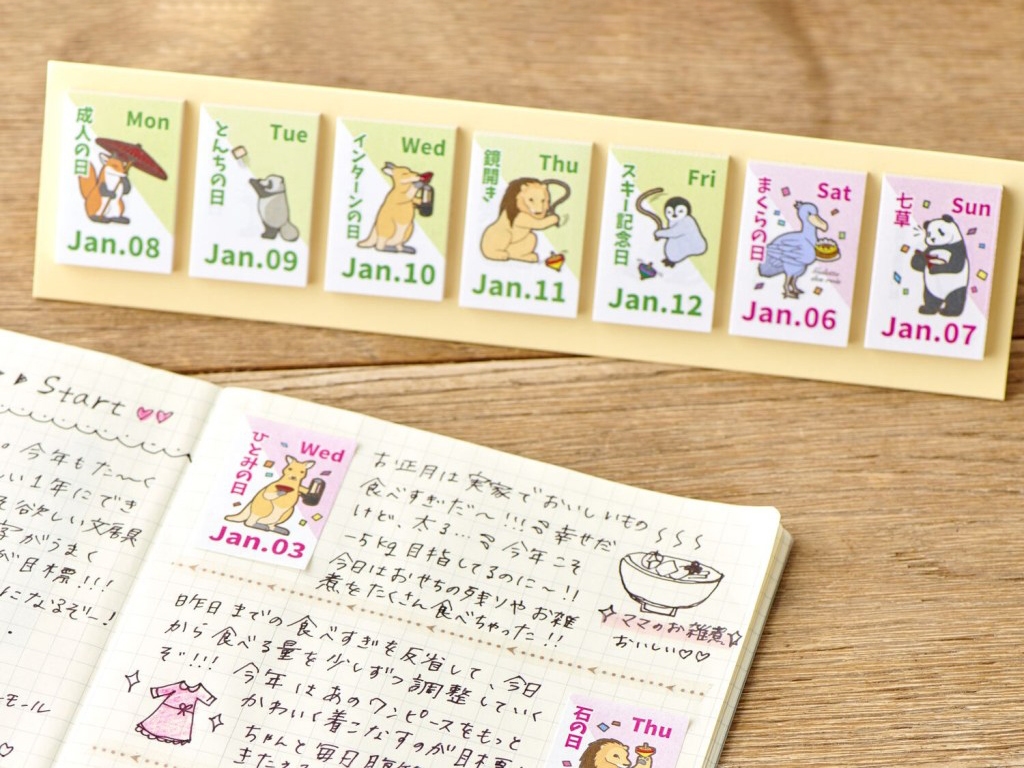 成人の日
Mon
Jan.08
とんちの日
Tue
Jan.09
インターンの日
Wed
Jan.10
鏡開き
Thu
Jan.11
スキー記念日
Fri
Jan.12
まくらの日
Sat
Jan.06
七草
Sun
Jan.07
Start
今年もた〜く
い1年にでき
欲しい文房具
字がうまく
が目標!!!
になるぞー!
モール
ひとみの日
Wed
Jan.03
お正月は実家でおいしいもの
食べすぎだ〜!!! 幸せだ
けど、太る… 今年こそ
-5kg目指してるのに〜!!
今日はおせちの残りやお雑
煮をたくさん食べちゃった!!
ママのお雑煮
おいしい♡♡
昨日までの食べすぎを反省して、今日
から食べる量を少しずつ調整していく
ぞ!!!
今年はあのワンピースをもっと
かわいく着こなすのが目標
ちゃんと毎日
石の日
Thu